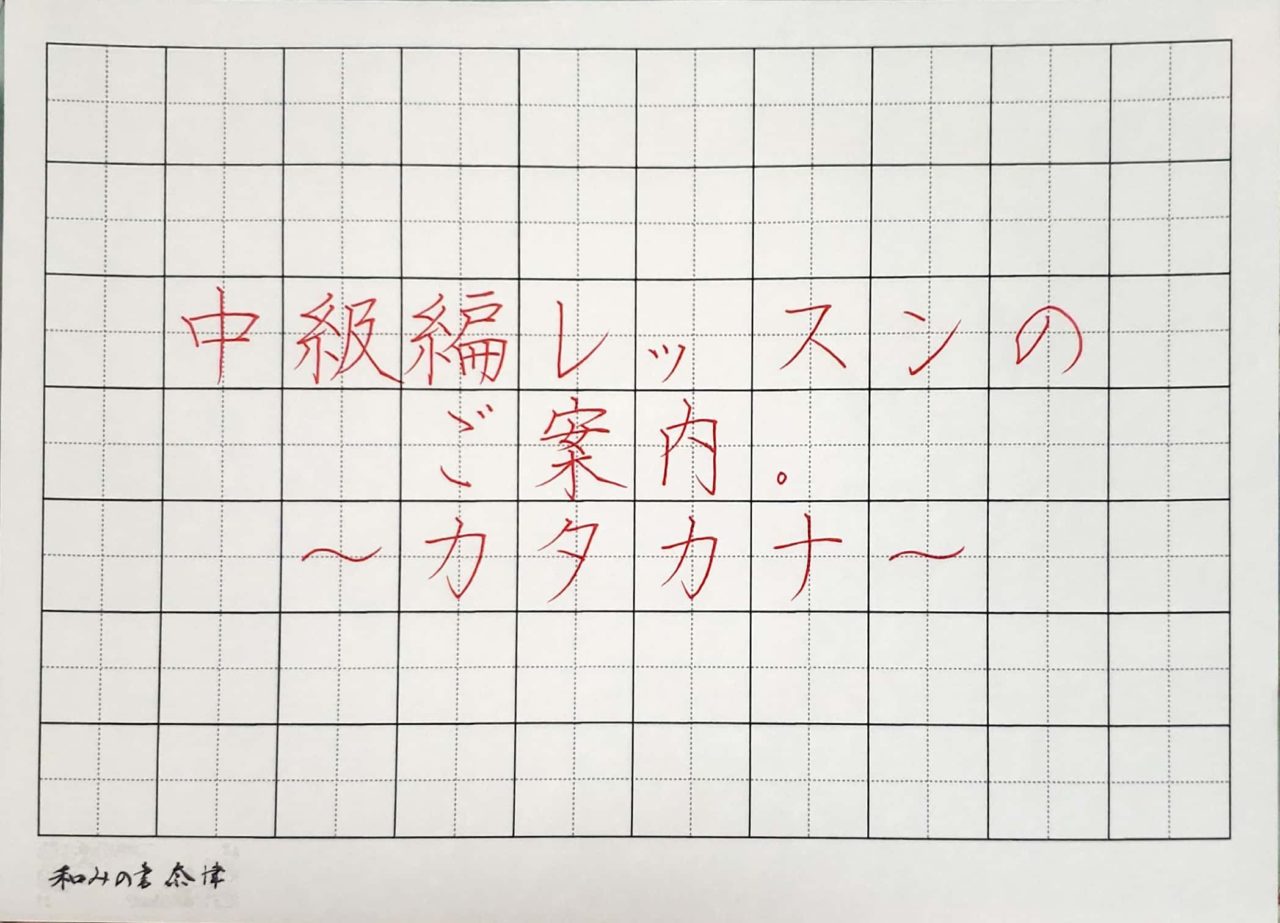 中級編レッスンの
ご案内。
〜カタカナ〜
和みの書 奈津